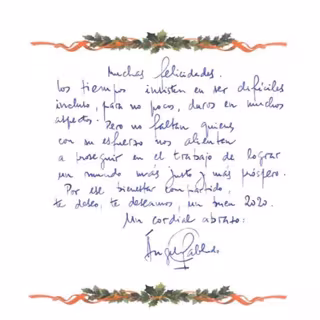 Muchas felicidades.
Los tiempos insisten en ser difíciles
incluso, para no pocos, duros en muchos
aspectos. Pero no faltan quienes
con su esfuerzo nos alienten
a proseguir en el trabajo de lograr
un mundo más justo y más próspero.
Por ese bienestar compartido,
te deseo, te deseamos, un buen 2020.
Un cordial abrazo:
Ángel Gabilondo